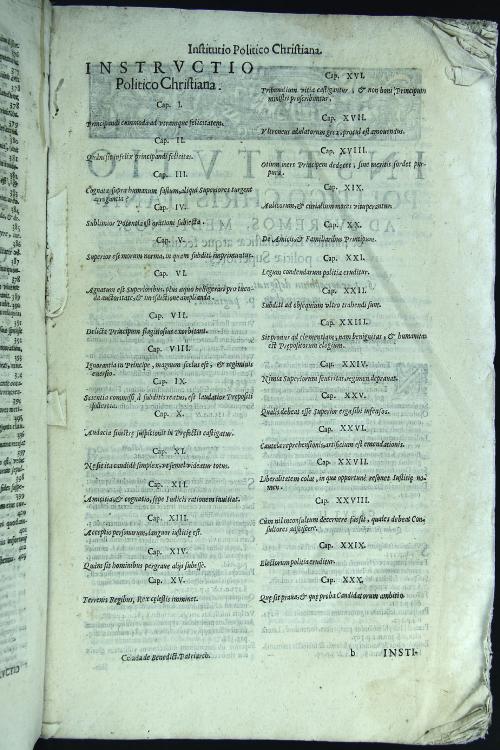 Institutio Politico Christiana.
INSTRVCTIO
Politico Christiana.
Cap. I.
Principandi commoda ad veramque felicitatem.
Cap. II.
Quàm sit infelix principandi felicitas.
Cap. III.
Cognata, supra humanum solium, aliqui Superiores turgent
arrogantia.
Cap. IV.
Sublimior Potentia est orationi subiecta.
Cap. V.
Superior est morum norma, in quem subditi
Cap. VI.
Agnatum est Superioribus,
da auctoritate, & iurisdictione amplianda.
Cap. VII.
Delicta Principum flagitiosius exorbitant.
Cap. VIII.
Ignorantia in Principe, magnum scelus est, & regiminis
euersio.
Cap. IX.
Scientia commissi à subditis reatus, est laudatior Prepositi
Cap. X.
Audacia sinistrę suspitionis in Prefectis castigatur.
Cap. XI.
Ne sit ita candidè simplex, vt semel videatur totus.
Cap. XII.
Amicitia, & cognatio, sępe Iudicis rationem inuitiat.
Cap. XIII.
Acceptio personarum, languor iustitię est.
Cap. XIV.
Quàm sit hominibus pergraue alijs subesse.
Cap. XV.
Terrenis Regibus, Rex cęlestis imminet.
Cap. XVI.
Tribunalium vitia castigantur, & non boni Principum
ministri proscribuntur.
Cap. XVII.
Vltroneus adulatorum grex, procul est amouendus.
Cap. XVIII.
Otium iners Principem dedecet, sine meritis sordet pur-
pura.
Cap. XIX.
Aulicorum, & curialium mores vituperantur.
Cap. XX.
De Amicis, & Familiaribus Principum.
Cap. XXI.
Legum condendarum politia eruditur.
Cap. XXII.
Subditi ad obsequium vltro trahendi sunt.
Cap. XXIII.
Sit pronus ad clementiam, nam benignitas, & humanitas
est Prepositorum elogium.
Cap. XXIV.
Nimia Superiorum seueritas, regimen deprauat.
Cap. XXV.
Qualis debeat esse Superior erga sibi infensos.
Cap. XXVI.
Cautela reprehensionis, artificium est emendationis.
Cap. XXVII.
Liberalitatem colat, in qua opportunè resonet Iustitię no-
men.
Cap. XXVIII.
Cùm nil inconsultum decernere fas sit, quales debeat Con-
sultores adsciscere.
Cap. XXIX.
Electorum politia eruditur.
Cap. XXX.
Quę sit praua, & quę proba Candidatorum ambitio.
Casada de Benedict. Patriarch.
b
INSTI-